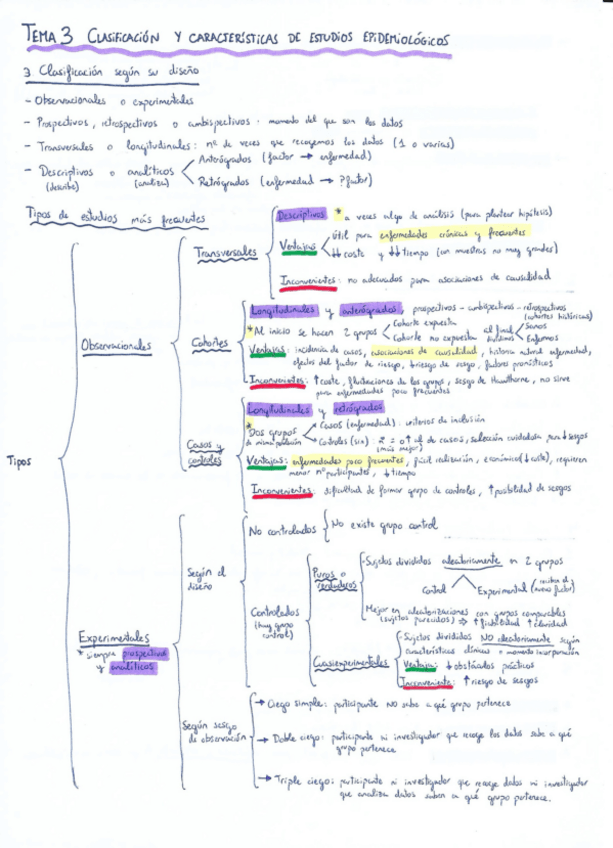 TEMA 3 CLASIFICACIÓN Y CARACTERÍSTICAS DE ESTUDIOS EPIDEMIOLÓGICOS
3 Clasificación según su diseño
- Observacionales o experimentales
- Prospectivos, retrospectivos o ambispectivos: momento del que son los datos
- Transversales o longitudinales: nº de veces que recogemos los datos (1 o varias)
- Descriptivos o analíticos
(describe) (analiza)
Anterógrados (factor → enfermedad)
Retrógrados (enfermedad → ?factor)
Tipos de estudios más frecuentes
Tipos
Observacionales
Transversales
Descriptivos * a veces algo de análisis (para plantear hipótesis)
Ventajas
útil para enfermedades crónicas y frecuentes
↓↓ coste y ↓↓ tiempo (con muestras no muy grandes)
Inconvenientes: no adecuados para asociaciones de causalidad
Cohortes
Longitudinales y anterógrados, prospectivos - ambispectivos - retrospectivos
(cohortes históricas)
* Al inicio se hacen 2 grupos
Cohorte expuesta
Cohorte no expuesta
al final
Sanos
Enfermos
Ventajas: incidencia de casos, asociaciones de causalidad, historia natural enfermedad,
efectos del factor de riesgo, ↓riesgo de sesgo, factores pronósticos
Inconvenientes: ↑coste, fluctuaciones de los grupos, sesgo de Hawthorne, no sirve
para enfermedades poco frecuentes
Casos y
controles
Longitudinales y retrógrados
* Dos grupos
de misma población
Casos (enfermedad): criterios de inclusión
Controles (sin): nº = o ↑ al de casos, selección cuidadosa para ↓sesgos
(más mejor)
Ventajas: enfermedades poco frecuentes, fácil realización, económico (↓coste), requieren
menor nº participantes, ↓ tiempo
Inconvenientes: dificultad de formar grupo de controles, ↑ posibilidad de sesgos
Experimentales
* siempre prospectivos
y analíticos
Según el
diseño
No controlados
No existe grupo control
Controlados
(hay grupo
control)
Puros o
verdaderos
- Sujetos divididos aleatoriamente en 2 grupos
Control
Experimental (reciben el nuevo factor)
Mejor en aleatorizaciones con grupos comparables
(sujetos parecidos) ⇒ ↑ fiabilidad ↑ claridad
Cuasiexperimentales
- Sujetos divididos NO aleatoriamente según
características clínicas o momento incorporación
Ventaja: ↓ obstáculos prácticos
Inconveniente: ↑ riesgo de sesgos
Según sesgo
de observación
→ Ciego simple: participante NO sabe a qué grupo pertenece
→ Doble ciego: participante ni investigador que recoge los datos sabe a qué
grupo pertenece.
→ Triple ciego: participante ni investigador que recoge datos ni investigador
que analiza datos saben a qué grupo pertenece.